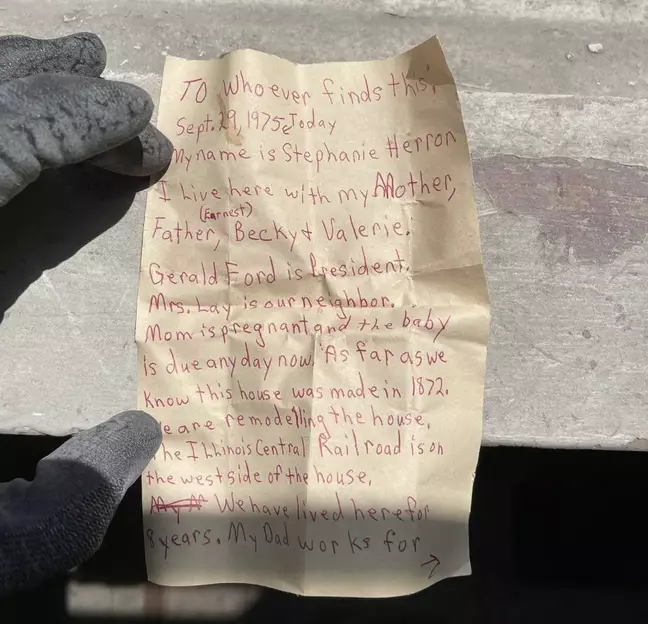 To whoever finds this,
Sept. 29, 1975 Today
My name is Stephanie Herron
I Live here with my Mother,
(Earnest)
Father, Becky + Valerie.
Gerald Ford is President.
Mrs. Lay is our neighbor.
Mom is pregnant and the baby
is due any day now. As far as we
know this house was made in 1872.
We are remodelling the house.
The Illinois Central Railroad is on
the west side of the house.
We have lived here for
8 years. My Dad works for
→